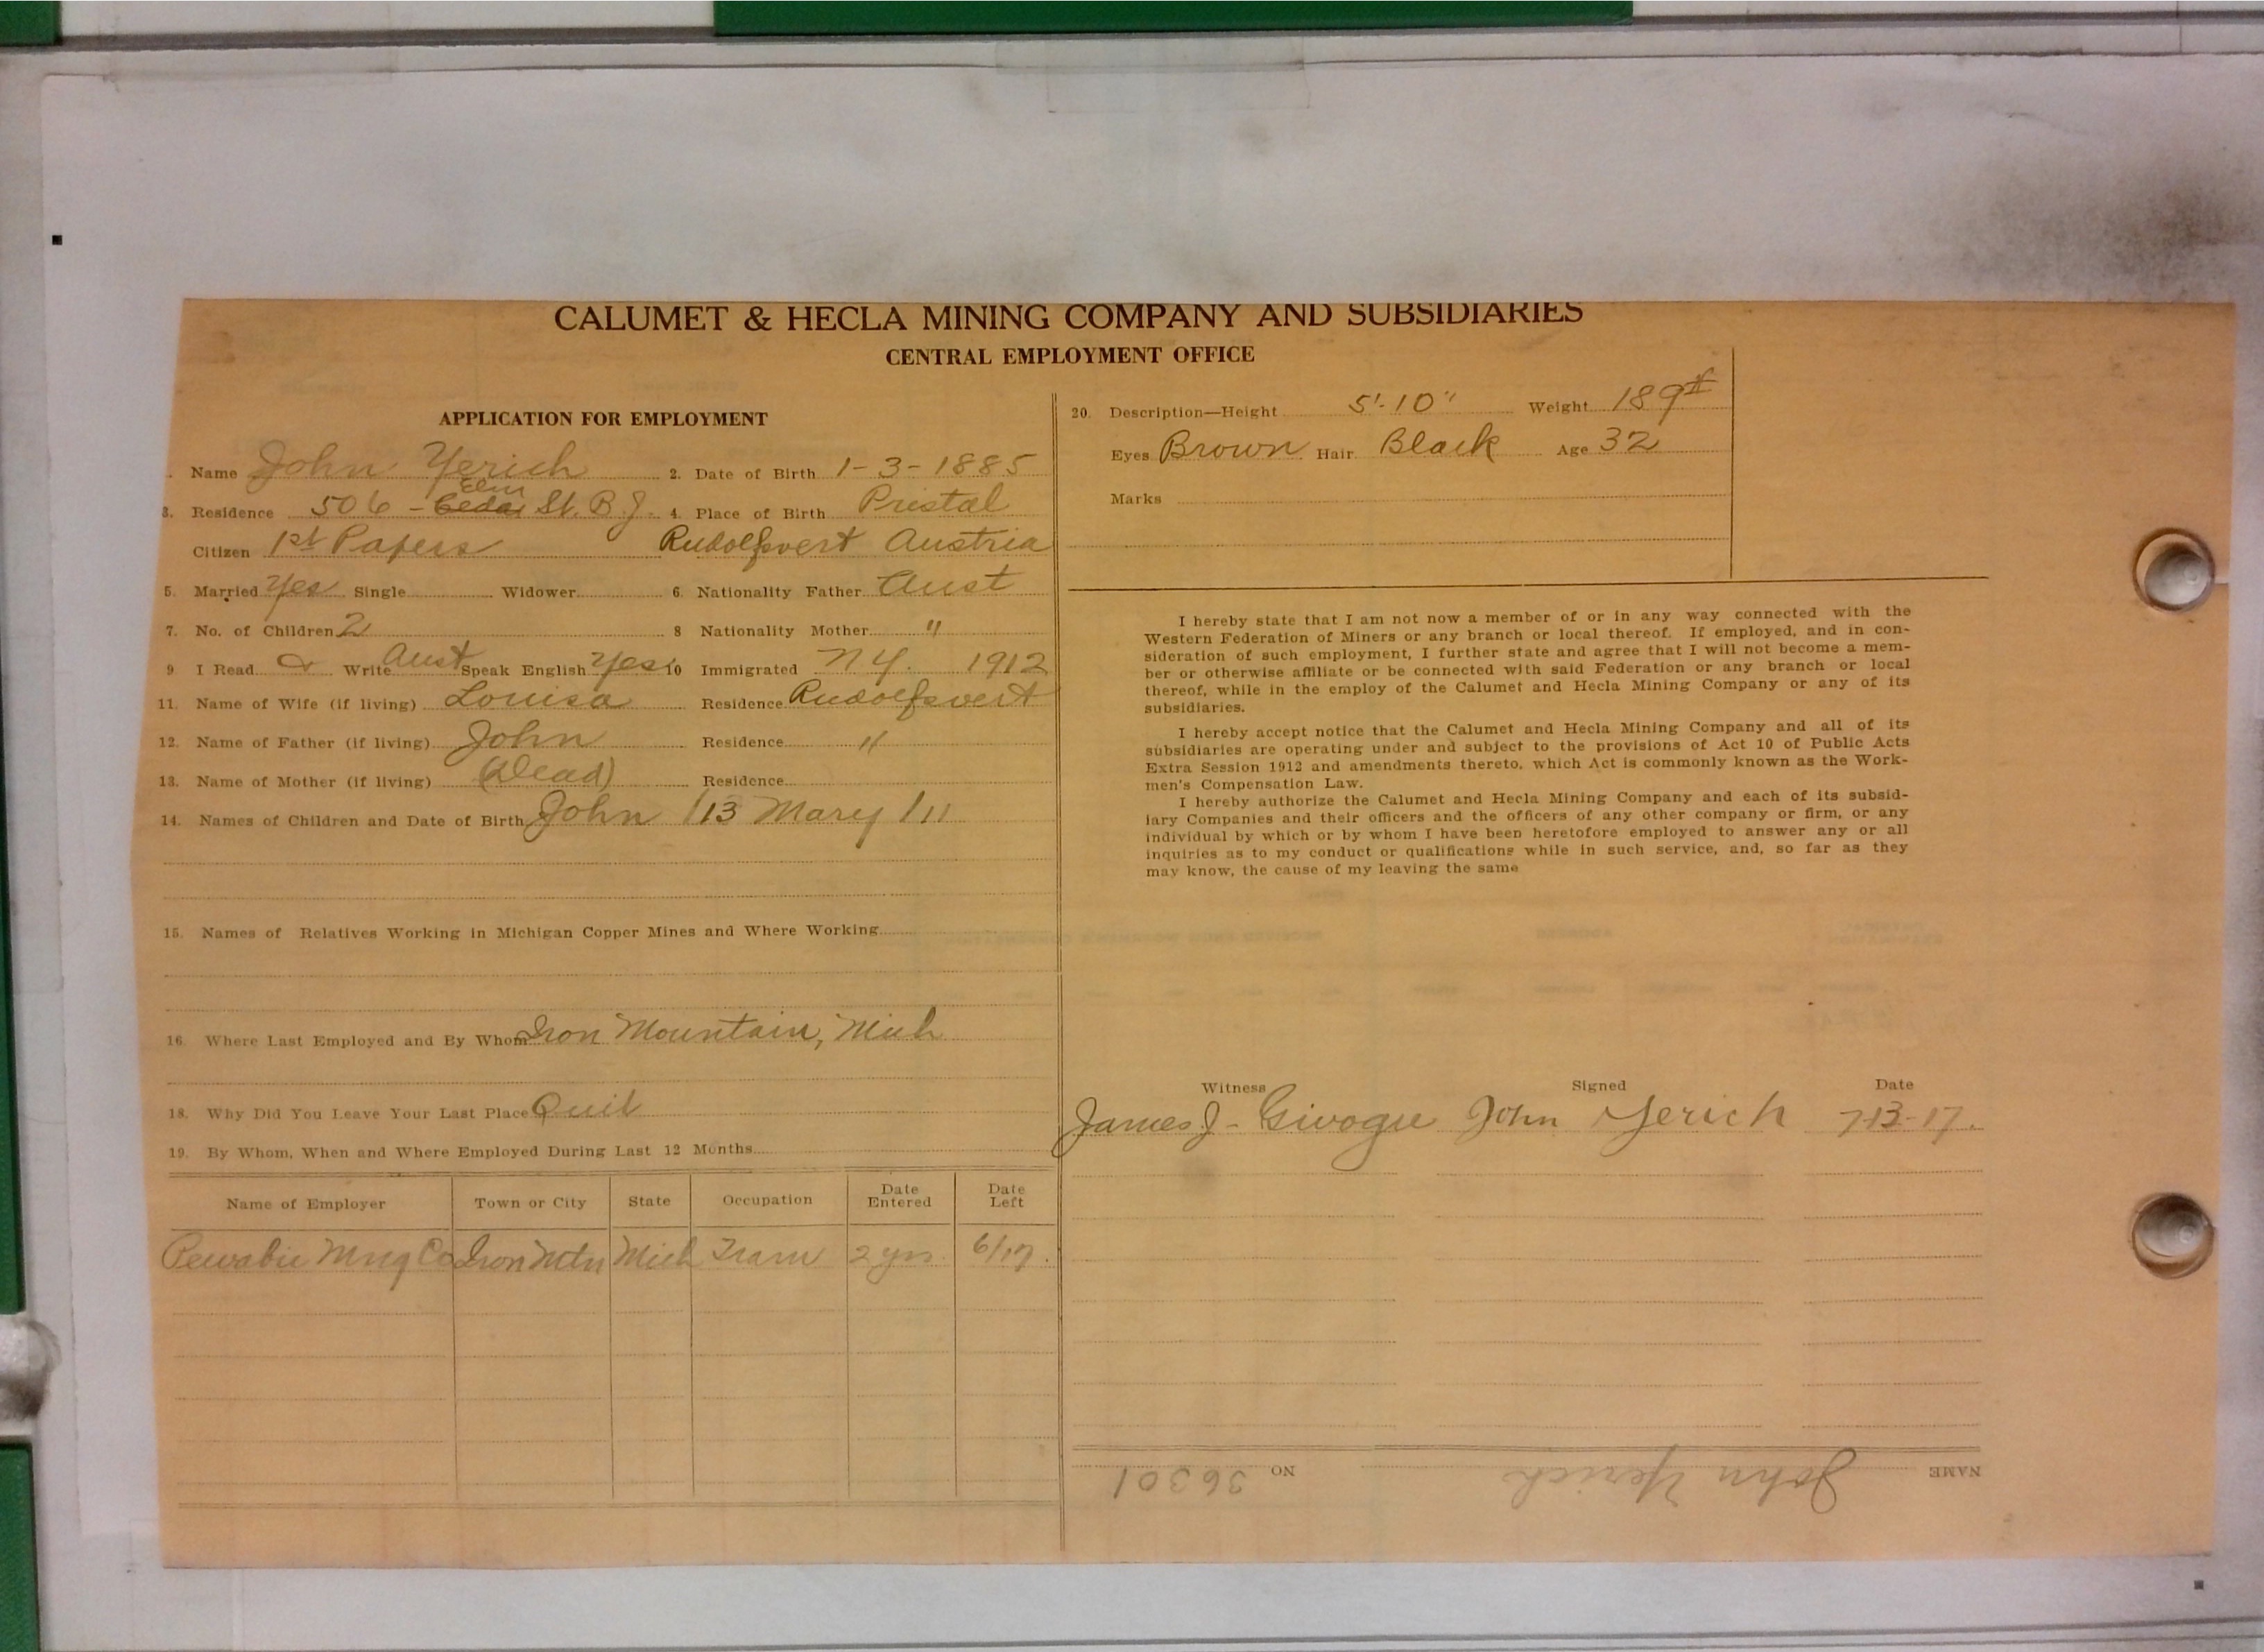 CALUMET & HECLA MINING COMPANY AND SUBSIDIARIES
CENTRAL EMPLOYMENT OFFICE
APPLICATION FOR EMPLOYMENT
Name John Yerich 2. Date of Birth 1-3-1885
3. Residence 506 - Cedar Elm St. B.J. 4. Place of Birth Pristal
Citizen 1st Papers Rudolfsvert Austria
5. Married Yes Single Widower 6. Nationality Father Aust
7. No. of Children 2 8 Nationality Mother "
9 I Read & Write Aust Speak English Yes 10 Immigrated N.Y. 1912
11. Name of Wife (if living) Louisa Residence Rudolfsvert
12. Name of Father (if living) John Residence "
13. Name of Mother (if living) (Dead) Residence
14. Names of Children and Date of Birth John /13 Mary /11
15. Names of Relatives Working in Michigan Copper Mines and Where Working
16. Where Last Employed and By Whom Iron Mountain, Mich
18. Why Did You Leave Your Last Place Quit
19. By Whom, When and Where Employed During Last 12 Months
Name of Employer Town or City State Occupation Date Entered Date Left
Pewabic Mng Co Iron Mtn Mich Tram 2 yrs. 6/17.
20. Description—Height 5'-10" Weight 189#
Eyes Brown Hair Black Age 32
Marks
I hereby state that I am not now a member of or in any way connected with the
Western Federation of Miners or any branch or local thereof. If employed, and in con-
sideration of such employment, I further state and agree that I will not become a mem-
ber or otherwise affiliate or be connected with said Federation or any branch or local
thereof, while in the employ of the Calumet and Hecla Mining Company or any of its
subsidiaries.
I hereby accept notice that the Calumet and Hecla Mining Company and all of its
subsidiaries are operating under and subject to the provisions of Act 10 of Public Acts
Extra Session 1912 and amendments thereto, which Act is commonly known as the Work-
men's Compensation Law.
I hereby authorize the Calumet and Hecla Mining Company and each of its subsid-
iary Companies and their officers and the officers of any other company or firm, or any
individual by which or by whom I have been heretofore employed to answer any or all
inquiries as to my conduct or qualifications while in such service, and, so far as they
may know, the cause of my leaving the same
Witness Signed Date
James J. John Yerich 7-13-17.
NAME John Yerich NO 36301